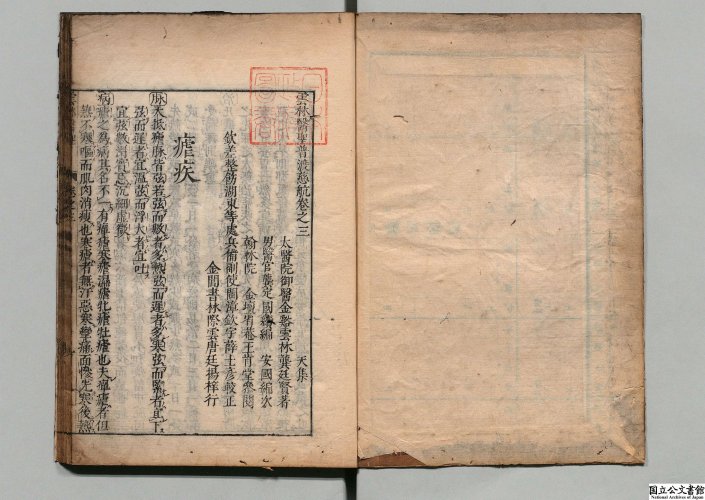 雲林醫聖普渡慈航卷之三
天集
太醫院御醫金谿雲林龔廷賢著
男醫官龔定國續編 安國編次
翰林院 金壇肯菴王肯堂參閱
欽差整飭湖東等處兵備副使閩漳欽宇薛士彥較正
金閶書林際雲唐廷楊梓行
瘧疾
脉大抵瘧脉皆弦若弦而數者多熱弦而遲者多寒弦而緊者宜下
弦而遲者宜溫弦而浮大者宜吐
宜弦數沉細虛微
病瘧之為病其名不一有瘧寒瘧溫瘧牝瘧牡瘧也夫癉瘧者但
熱不寒嘔而肌肉消瘦也寒瘧者無汗惡寒攣痛而慘先寒後熱
国立公文書館
National Archives of Japan